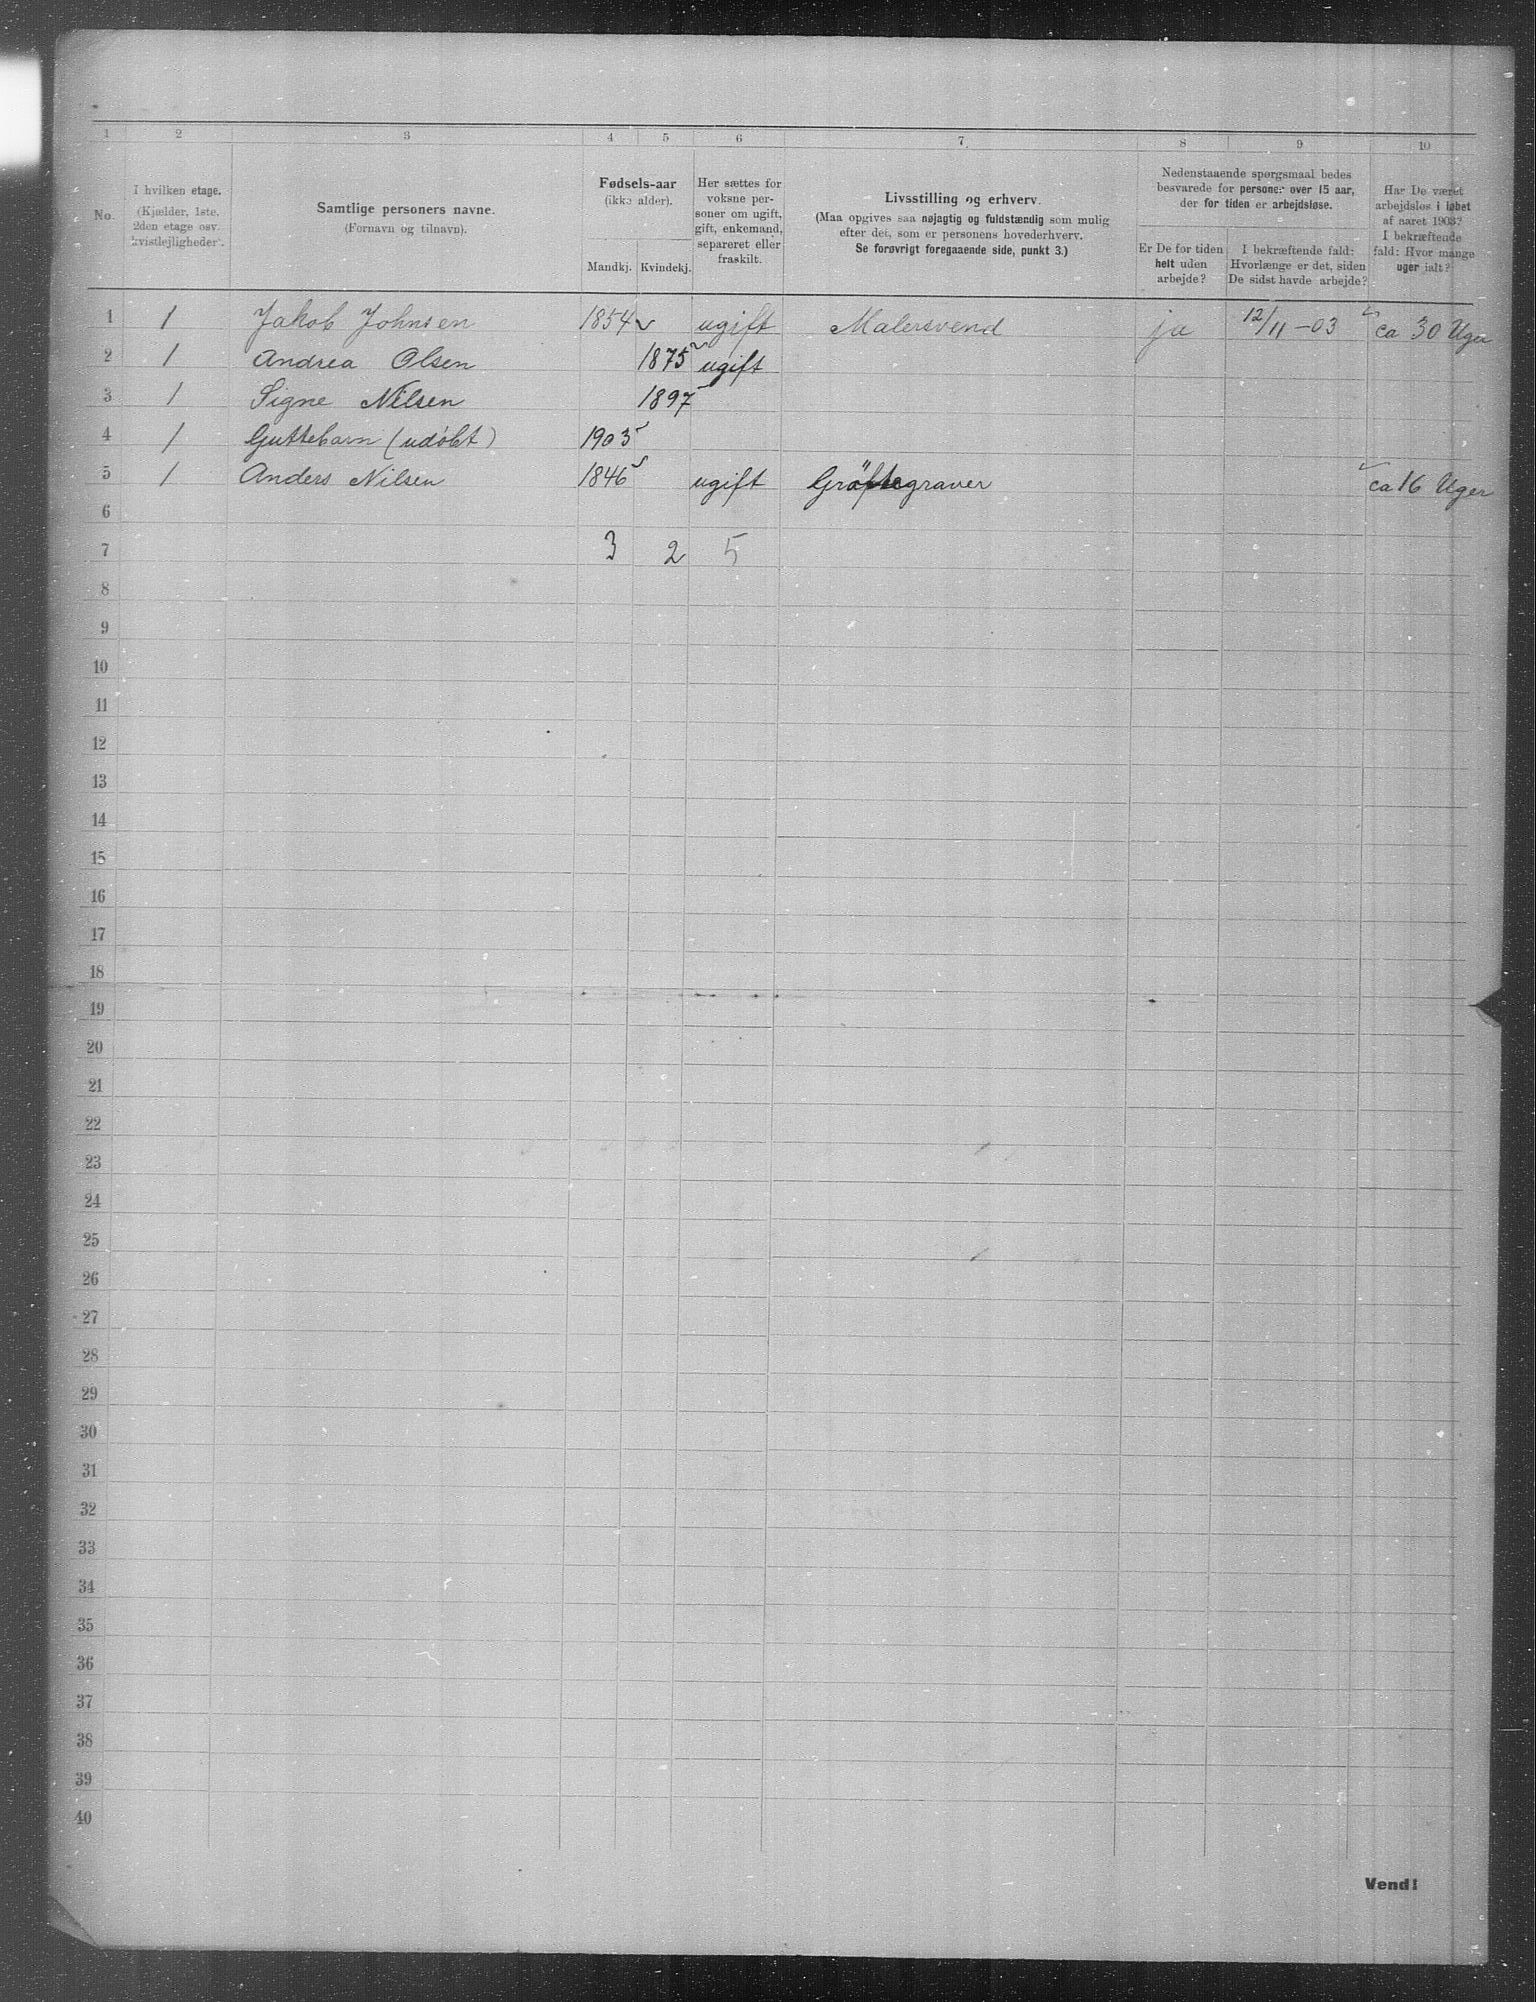 1 2 3 4 5 6 7. 8 9 10
No.
I hvilken etage.
(Kjælder, 1ste,
2den etage osv.
kvistlejligheder).
Samtlige personers navne.
(Fornavn og tilnavn).
Fødsels-aar
(ikke alder).
Mandkj. Kvindekj.
Her sættes for
voksne per-
soner om ugift,
gift, enkemand,
separeret eller
fraskilt.
Livsstilling og erhverv.
(Maa opgives saa nøjagtig og fuldstændig som mulig
efter det, som er personens hovederhverv.
Se forøvrigt foregaaende side, punkt 3.)
Nedenstaaende spørgsmaal bedes
besvarede for personer over 15 aar,
der for tiden er arbejdsløse.
Er De for tiden
helt uden
arbejde?
I bekræftende fald:
Hvorlænge er det, siden
De sidst havde arbejde?
Har De været
arbejdsløs i løbet
af aaret 1903?
I bekræftende
fald: Hvor mange
uger ialt?
1 1 Jakob Johnsen 1854 ugift Malersvend ja 12/11-03 ca 30 Uger
2 1 Andrea Olsen 1875 ugift
3 1 Signe Nilsen 1897
4 1 Guttebarn (udøbt) 1903
5 1 Anders Nilsen 1846 ugift Gröftegraver ca 16 Uger
6
7 3 2 5
8
9
10
11
12
13
14
15
16
17
18
19
20
21
22
23
24
25
26
27
28
29
30
31
32
33
34
35
36
37
38
39
40
Vend!